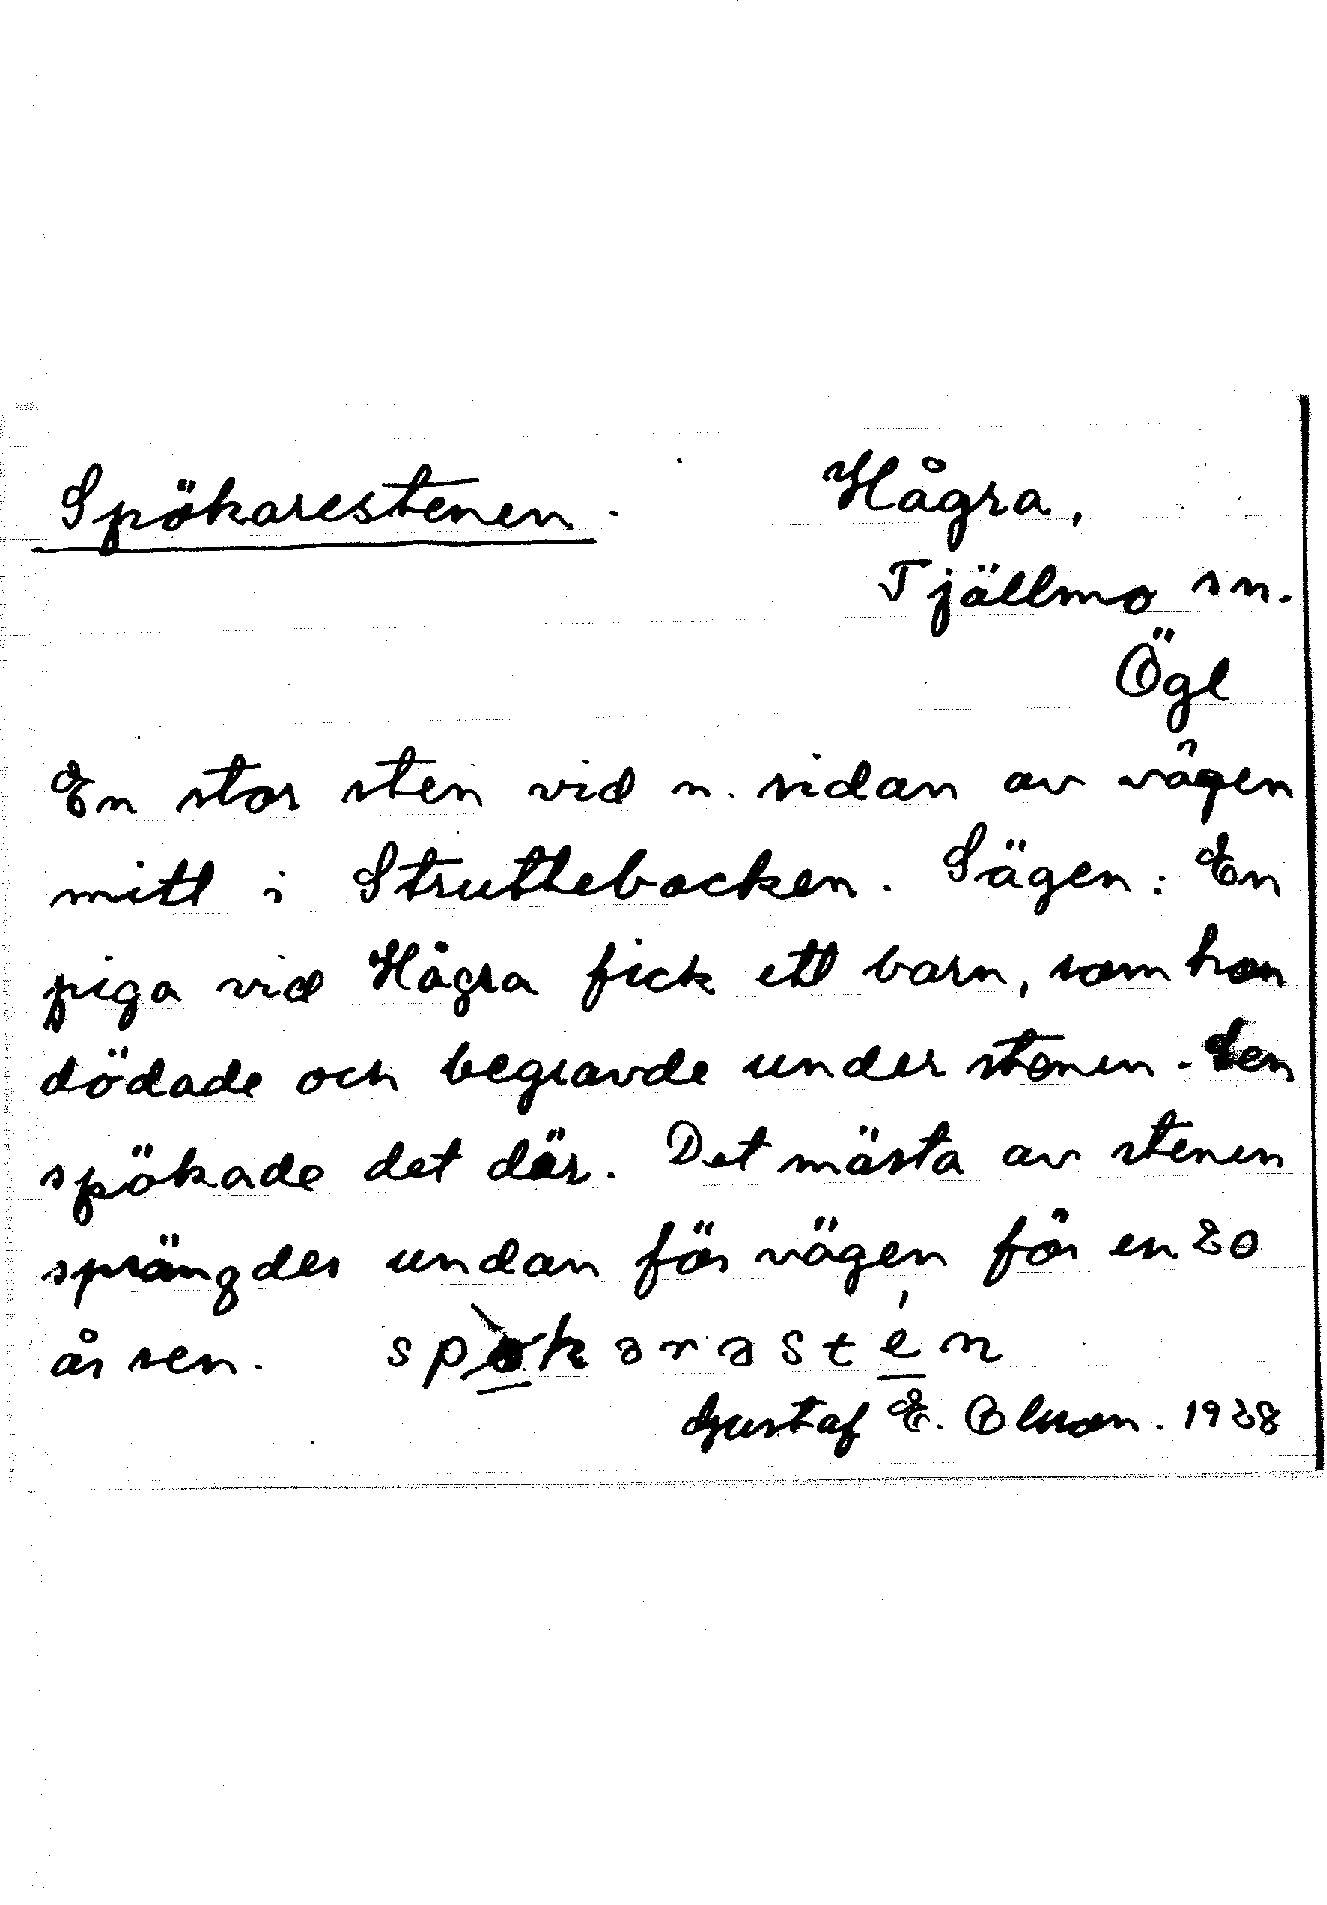 Spökarestenen. Hågra,
Tjällmo sn.
Ögl
En stor sten vid n. sidan av vägen
mitt i Struttebacken. Sägen: En
piga vid Hågra fick ett barn, som hon
dödade och begravde under stenen. Sen
spökade det där. Det mästa av stenen
sprängdes undan för vägen för en 20
år sen. spøkarastén
Gustaf E. Olsson. 1938